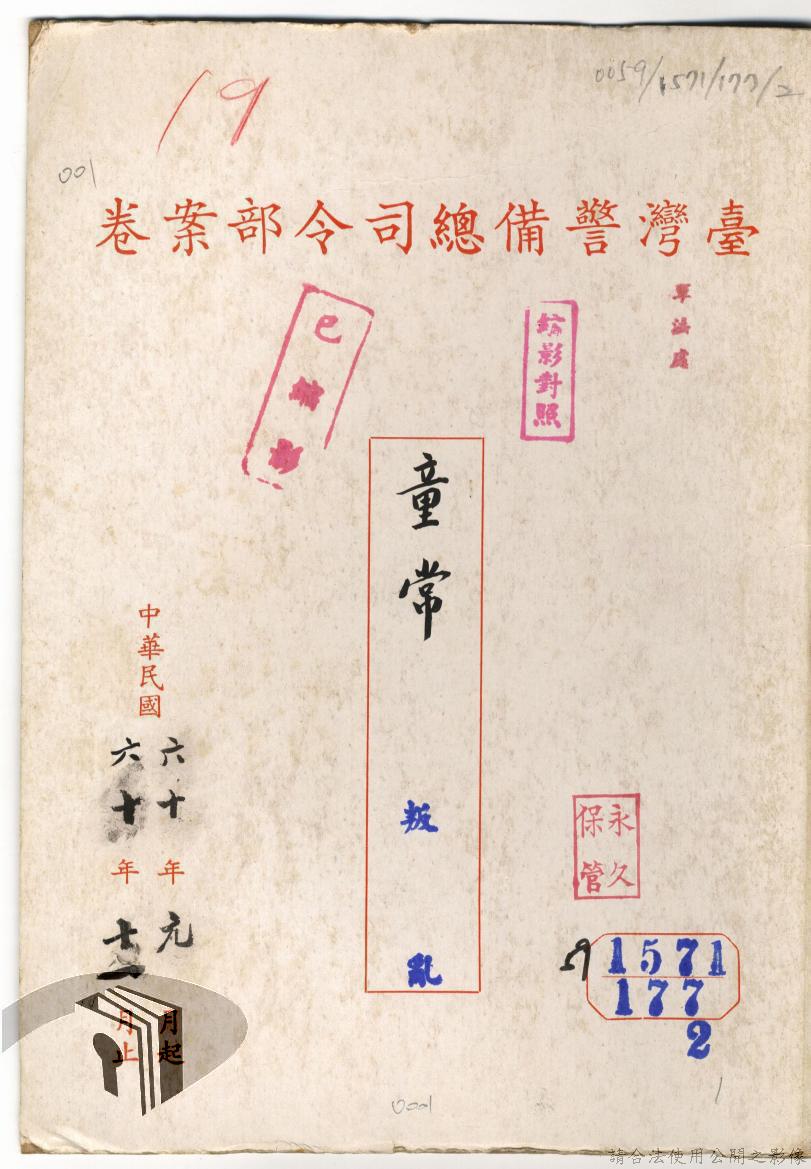 19
0059/1571/177/2
001
臺灣警備總司令部案卷
軍法處
縮影對照
已縮影
童常
叛亂
中華民國
六十年元月起
六十年十一月止
永久
保管
59 1571
177
2
0001
1
請合法使用公開之影像